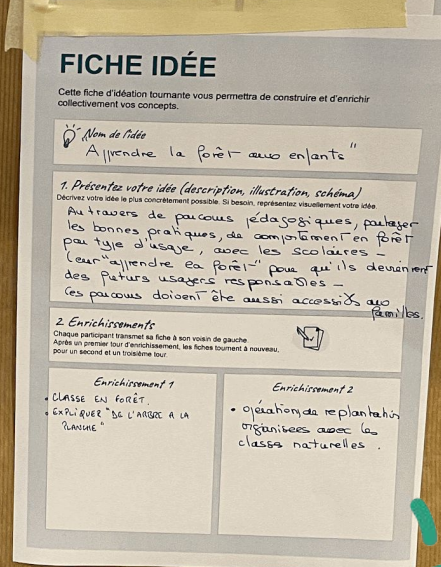 FICHE IDÉE
Cette fiche d'idéation tournante vous permettra de construire et d'enrichir
collectivement vos concepts.
Nom de l'idée
Apprendre la forêt aux enfants"
1. Présentez votre idée (description, illustration, schéma)
Décrivez votre idée le plus concrètement possible. Si besoin, représentez visuellement votre idée.
Au travers de parcours pédagogiques, partager
les bonnes pratiques, de comportement en forêt
par type d'usage, avec les scolaires -
Leur "apprendre la forêt" pour qu'ils deviennent
des futurs usagers responsables -
Ces parcours doivent être aussi accessibles aux
familles.
2. Enrichissements
Chaque participant transmet sa fiche à son voisin de gauche.
Après un premier tour d'enrichissement, les fiches tournent à nouveau,
pour un second et un troisième tour.
Enrichissement 1
• CLASSE EN FORÊT.
• EXPLIQUER "DE L'ARBRE A LA
PLANCHE"
Enrichissement 2
• opération de replantation
organisées avec les
classes naturelles.